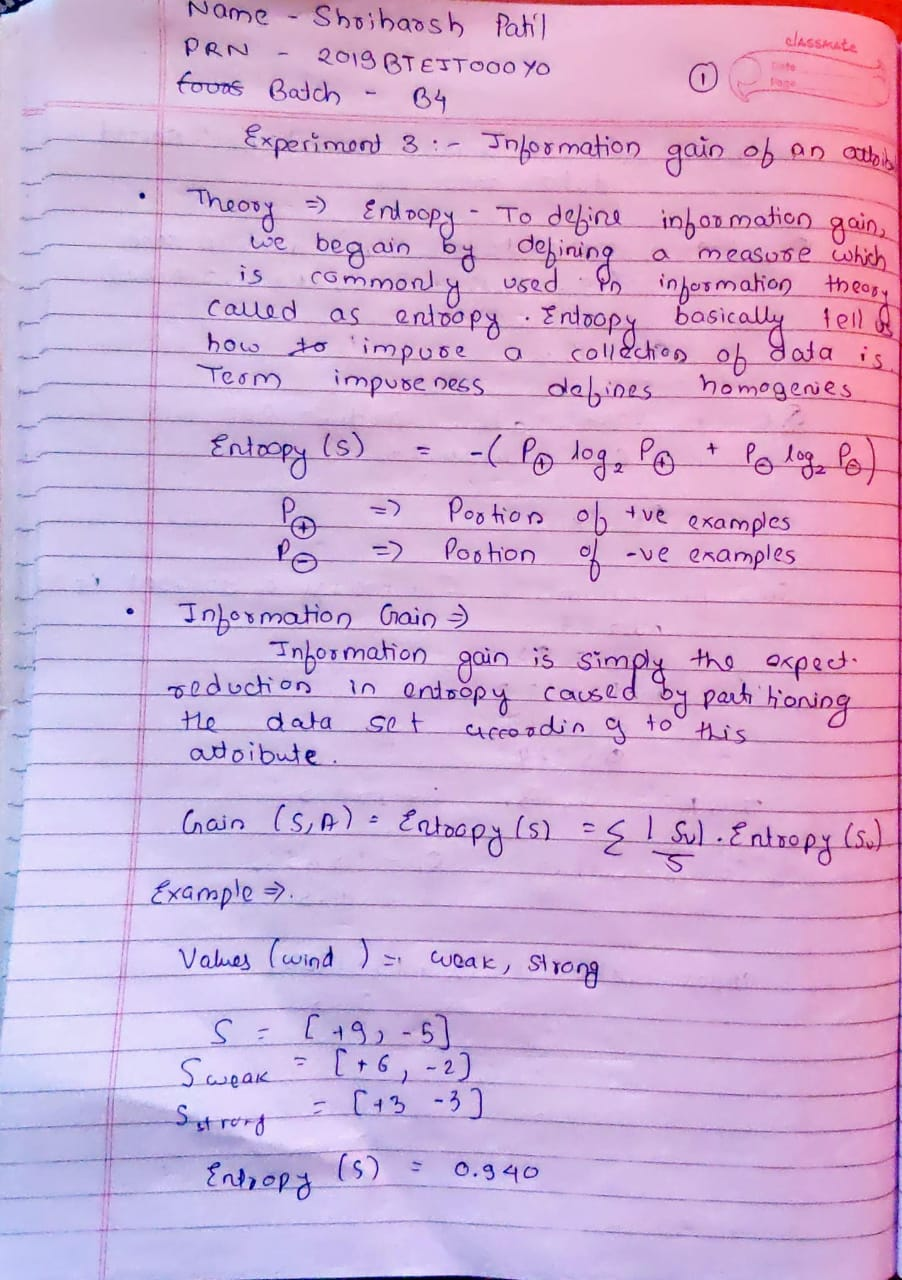 Name - Shriharsh Patil
classmate
Date
Page
PRN - 2019BTEIT00040
1
Batch - B4
Experiment 3 :- Information gain of an attrib
• Theory ⇒ Entropy - To define information gain,
we begain by defining a measure which
is commonly used in information theory
called as entropy. Entropy basically tell us
how to impure a collection of data is.
Term impureness defines homogenies
Entropy (S) = -( P⊕ log₂ P⊕ + P⊖ log₂ P⊖)
P⊕ => Portion of +ve examples
P⊖ => Portion of -ve examples
• Information Gain ⇒
Information gain is simply the expect.
reduction in entropy caused by partitioning
the data set according to this
attribute.
Gain (S,A) = Entropy (S) = Σ |Sv|/S . Entropy (Sv)
Example ⇒.
Values (wind) = weak, strong
S = [+9, -5]
S weak = [+6, -2]
S strong = [+3 -3]
Entropy (S) = 0.940